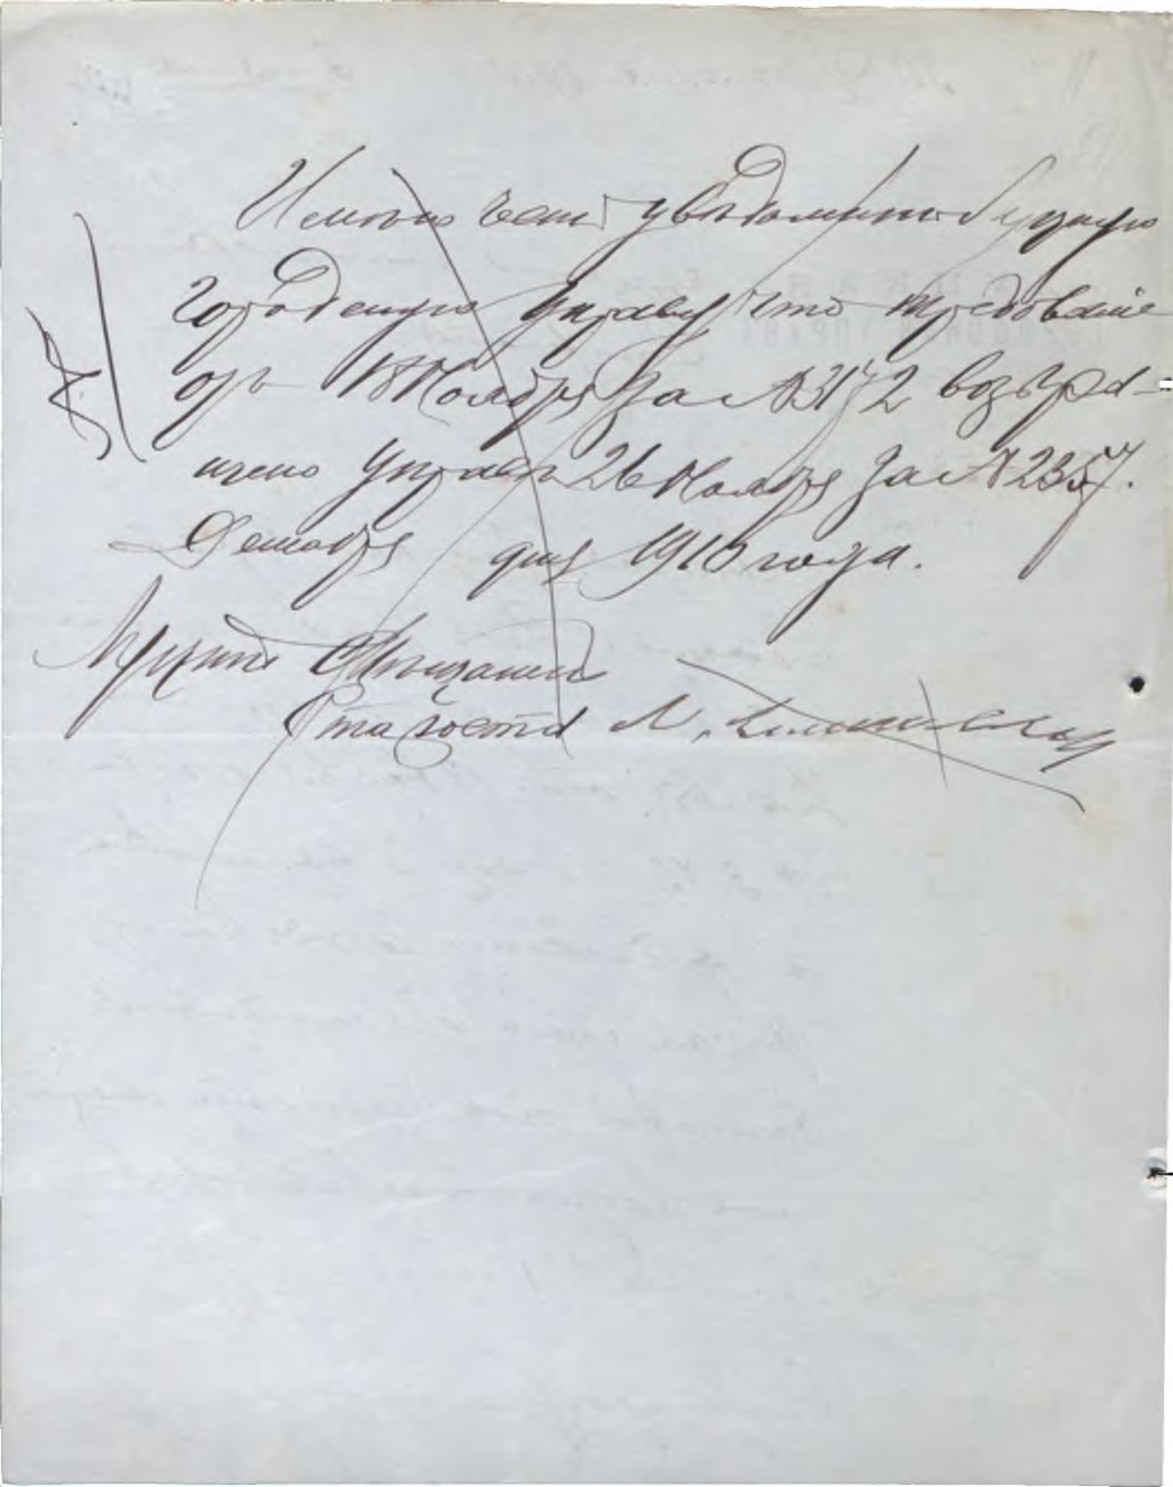 Имею честь уведомить Луцкую
городскую управу, что требованіе
отъ 18 Ноября за № 3172 возвра-
щено управѣ 26 Ноября за № 2357.
Декабря дня 1910 года.
Луцкій Мѣщанскій
Староста